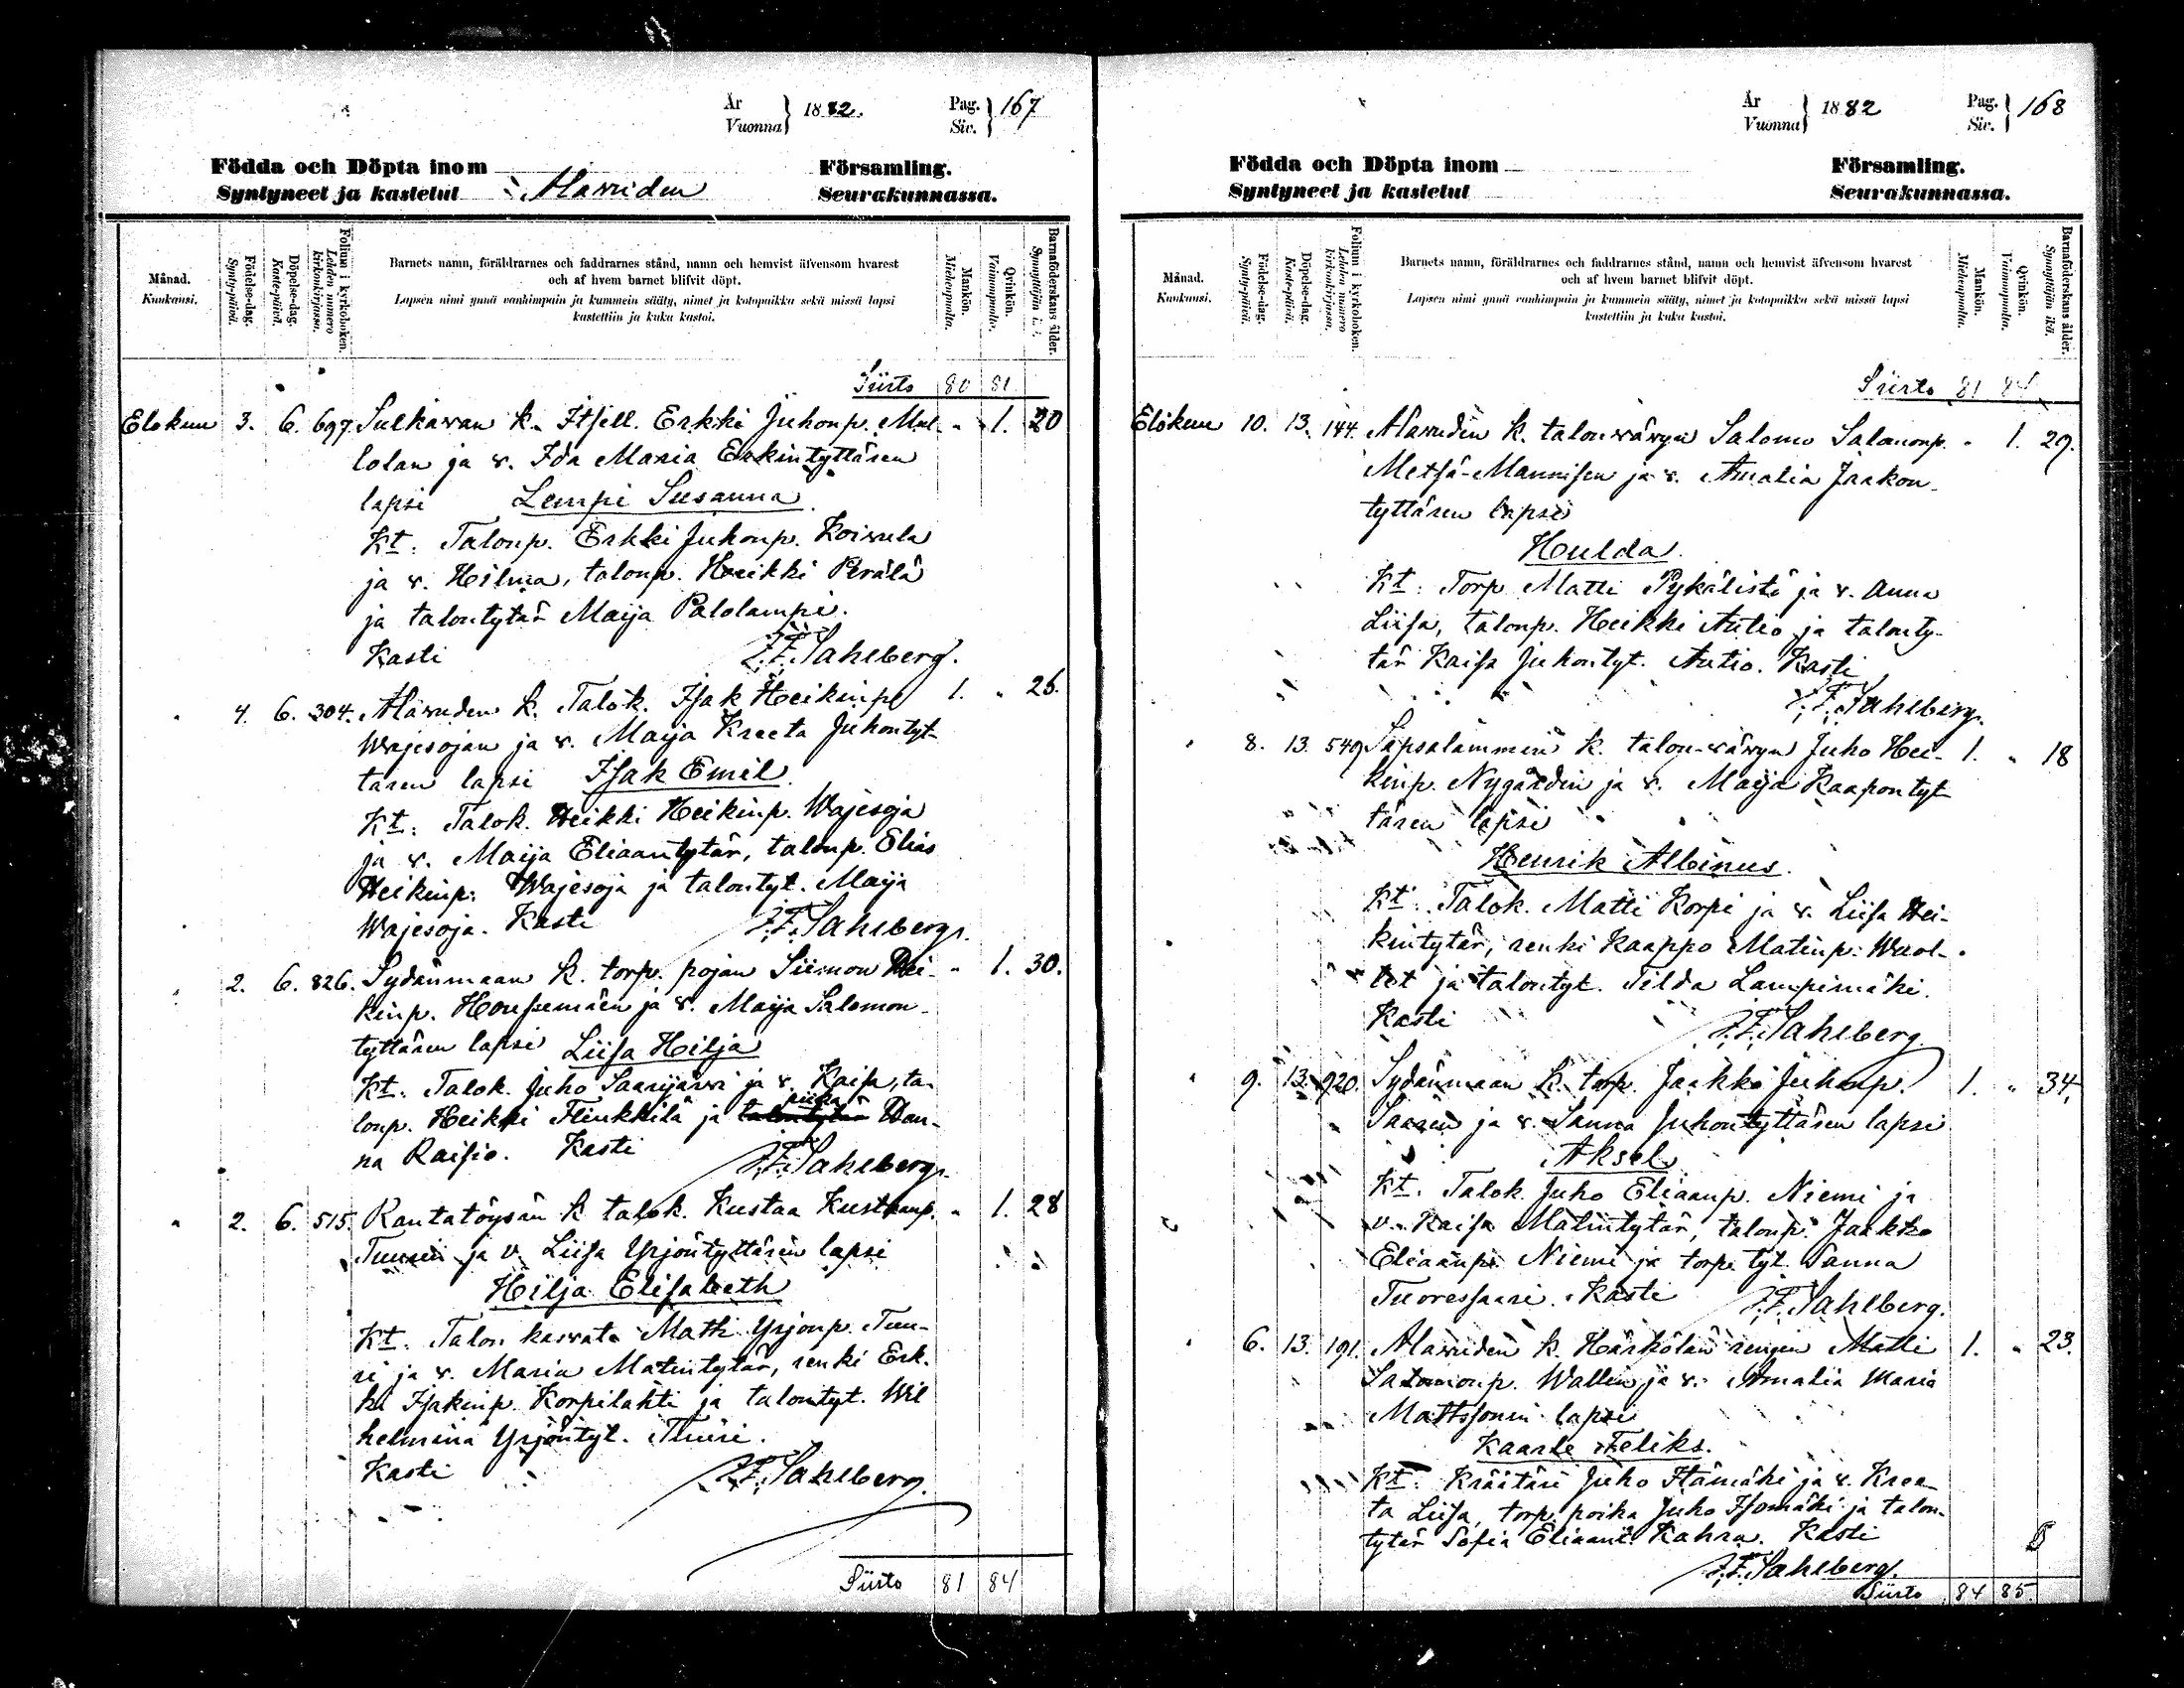 År
Vuonna } 1882.
Pag.
Siv. } 167
Födda och Döpta inom
Församling.
Syntyneet ja kastetut Alavuden Seurakunnassa.
Månad.
Kuukausi.
Födelse-dag.
Synty-päivä.
Döpelse-dag.
Kaste-päivä.
Folium i kyrkoboken.
Lehden numero
kirkonkirjassa.
Barnets namn, föräldrarnes och faddrarnes stånd, namn och hemvist äfvensom hvarest
och af hvem barnet blifvit döpt.
Lapsen nimi ynnä vanhimpain ja kummein sääty, nimet ja kotopaikka sekä missä lapsi
kastettiin ja kuka kastoi.
Mankön.
Miehenpuolta.
Qvinkön.
Vaimonpuolta.
Barnaföderskans ålder.
Siirto 80 81
Elokuu 3. 6. 697. Sulkavan k. Itsell. Erkki Juhonp. Mul- " 1. 20
lolan ja v. Ida Maria Erkintyttären
lapsi Lempi Susanna
Kt. Talonp. Erkki Juhonp. Koivula
ja v. Hilma, talonp. Heikki Perälä
ja talontytär Maija Palolampi.
Kasti J.F. Sahlberg.
" 4. 6. 304. Alavuden k. Talok. Isak Heikinp. 1. " 26.
Wajesojan ja v. Maija Kreeta Juhontyt-
tären lapsi Isak Emil.
Kt. Talok. Heikki Heikinp. Wajesoja
ja v. Maija Eliaantytär, talonp. Elias
Heikinp. Wajesoja ja talontyt. Maija
Wajesoja. Kasti J.F. Sahlberg.
" 2. 6. 826. Sydänmaan k. torp. pojan Siimon Hei- " 1. 30.
kinp. ja v. Maija Salomon-
tyttären lapsi Liisa Hilja
Kt. Talok. Juho Saarijärvi ja v. Kaisa, ta-
piika
lonp. Heikki Flinkkilä ja talontytär San-
na Raisio. Kasti J.F. Sahlberg.
" 2. 6. 515. Rantatöysän k talok. Kustaa Kustaanp. " 1. 28
Tuurin ja v. Liisa Yrjöntyttären lapsi
Hilja Elisabeth
Kt. Talon kasvate Matti Yrjönp. Tuu-
ri ja v. Maria Matintytär, renki Erk-
ki Isakinp. Korpilahti ja talontyt. Wil
helmina Yrjöntyt. Tuuri.
Kasti J.F. Sahlberg.
Siirto 81 84
År
Vuonna } 1882
Pag.
Siv. } 168
Födda och Döpta inom
Församling.
Syntyneet ja kastetut
Seurakunnassa.
Månad.
Kuukausi.
Födelse-dag.
Synty-päivä.
Döpelse-dag.
Kaste-päivä.
Folium i kyrkoboken.
Lehden numero
kirkonkirjassa.
Barnets namn, föräldrarnes och faddrarnes stånd, namn och hemvist äfvensom hvarest
och af hvem barnet blifvit döpt.
Lapsen nimi ynnä vanhimpain ja kummein sääty, nimet ja kotopaikka sekä missä lapsi
kastettiin ja kuka kastoi.
Mankön.
Miehenpuolta.
Qvinkön.
Vaimonpuolta.
Barnaföderskans ålder.
Synnyttäjän ikä.
Siirto 81 84
Elokuu 10. 13. 144. Alavuden k. talonvävyn Salomo Salomonp. " 1. 29.
Metsä-Mannisen ja v. Amalia Jaakon-
tyttären lapsi
Hulda.
Kt. Torp Matti Pykälistö ja v. Anna
Liisa, talonp. Heikki Autio ja talonty-
tär Kaisa Juhontyt. Autio. Kasti
J.F. Sahlberg.
" 8. 13. 549. Sapsalammin k. talon-vävyn Juho Hei- 1. " 18
kinp. Nygårdin ja v. Maija Kaapontyt
tären lapsi
Henrik Albinus.
Kt. Talok. Matti Korpi ja v. Liisa Hei-
kintytär, renki Kaappo Matinp. Waol-
tet ja talontyt. Tilda Lampimäki.
Kasti J.F. Sahlberg.
" 9. 13. 920. Sydänmaan k. torp. Jaakko Juhonp. 1. " 34.
Saaren ja v. Sanna Juhontyttären lapsi
Aksel
Kt. Talok. Juho Eliaanp. Niemi ja
v. Kaisa Matintytär, talonp. Jaakko
Eliaanp. Niemi ja torp. tyt. Sanna
Tuoressaari. Kasti J.F. Sahlberg.
" 6. 13. 191. Alavuden k. Härkölän rengin Matti 1. " 23.
Salomonp. Wallin ja v. Amalia Maria
Mattssonin lapsi
Kaarle Feliks.
Kt. Kräätäri Juho Hämäki ja v. Kree-
ta Liisa, torp. poika Juho Isomäki ja talon-
tytär Sofia Eliaant. Kahra. Kasti
J.F. Sahlberg.
Siirto 84 85.